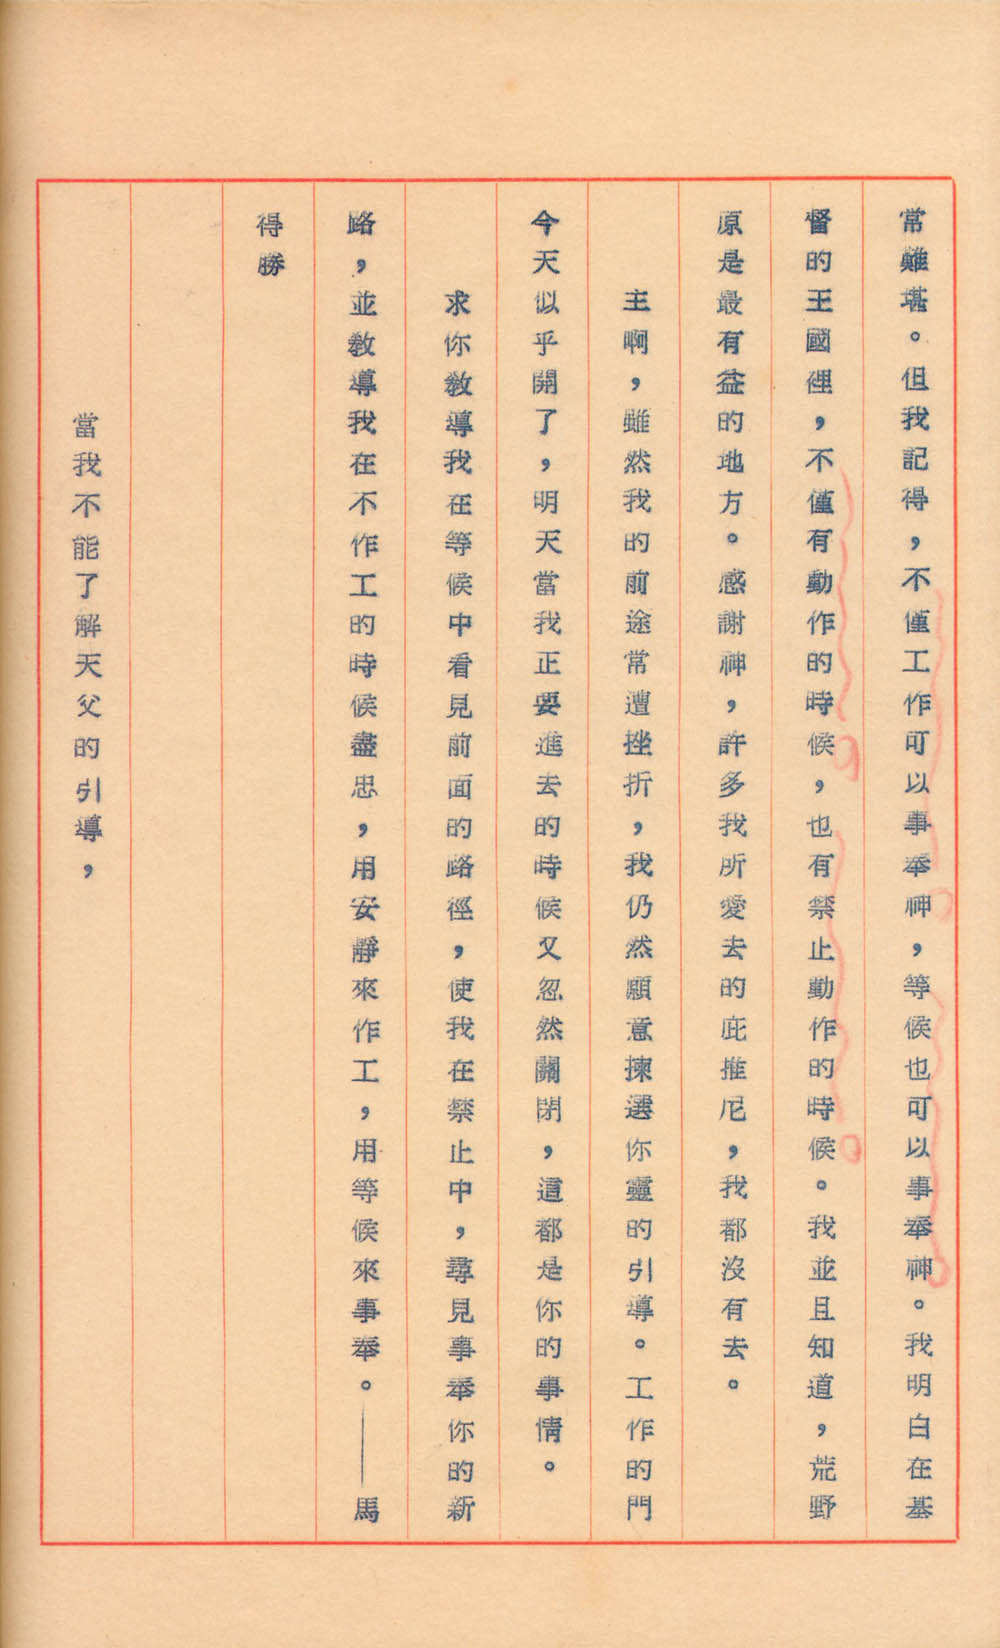 常難堪。但我記得，不僅工作可以事奉神，等候也可以事奉神。我明白在基
督的王國裡，不僅有動作的時候，也有禁止動作的時候。我並且知道，荒野
原是最有益的地方。感謝神，許多我所愛去的庇推尼，我都沒有去。
主啊，雖然我的前途常遭挫折，我仍然願意揀選你靈的引導。工作的門
今天似乎開了，明天當我正要進去的時候又忽然關閉，這都是你的事情。
求你教導我在等候中看見前面的路徑，使我在禁止中，尋見事奉你的新
路，並教導我在不作工的時候盡忠，用安靜來作工，用等候來事奉。——馬
得勝
當我不能了解天父的引導，